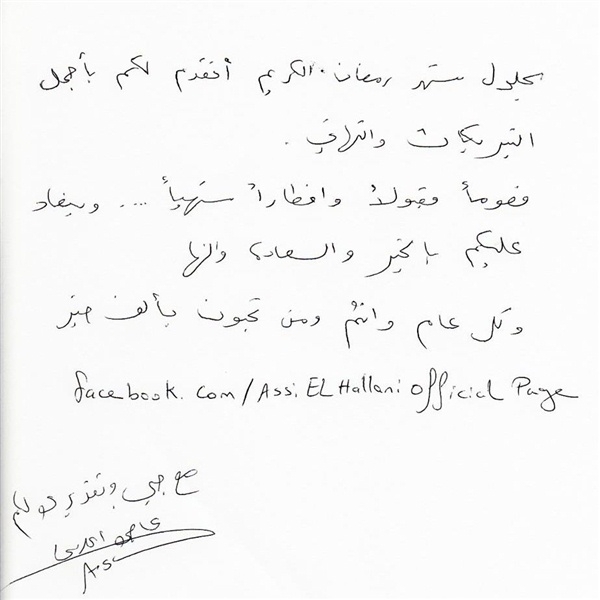 بحلول شهر رمضان الكريم أتقدم لكم بأجمل
التبريكات والتهاني .
فصوماً مقبولاً وافطاراً شهياً .... وينعاد
عليكم بالخير والسعادة والهنا
وكل عام وانتم ومن تحبون بألف خير
facebook.com/Assi EL Hallani official Page
مع حبي وتقديري لكم
عاصي الحلاني
Assi